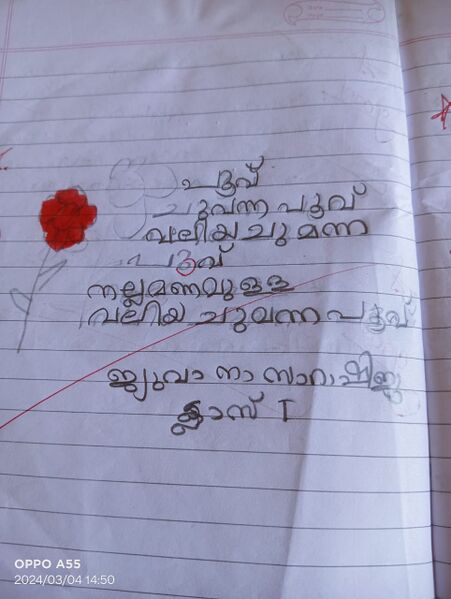 പൂവ്
ചുവന്ന പൂവ്
വലിയ ചുമന്ന
പൂവ്
നല്ലമണമുള്ള
വലിയ ചുവന്ന പൂവ്
ജ്യുവാ നാ സാറാ ഷിജു
ക്ലാസ് I
OPPO A55
2024/03/04 14:50